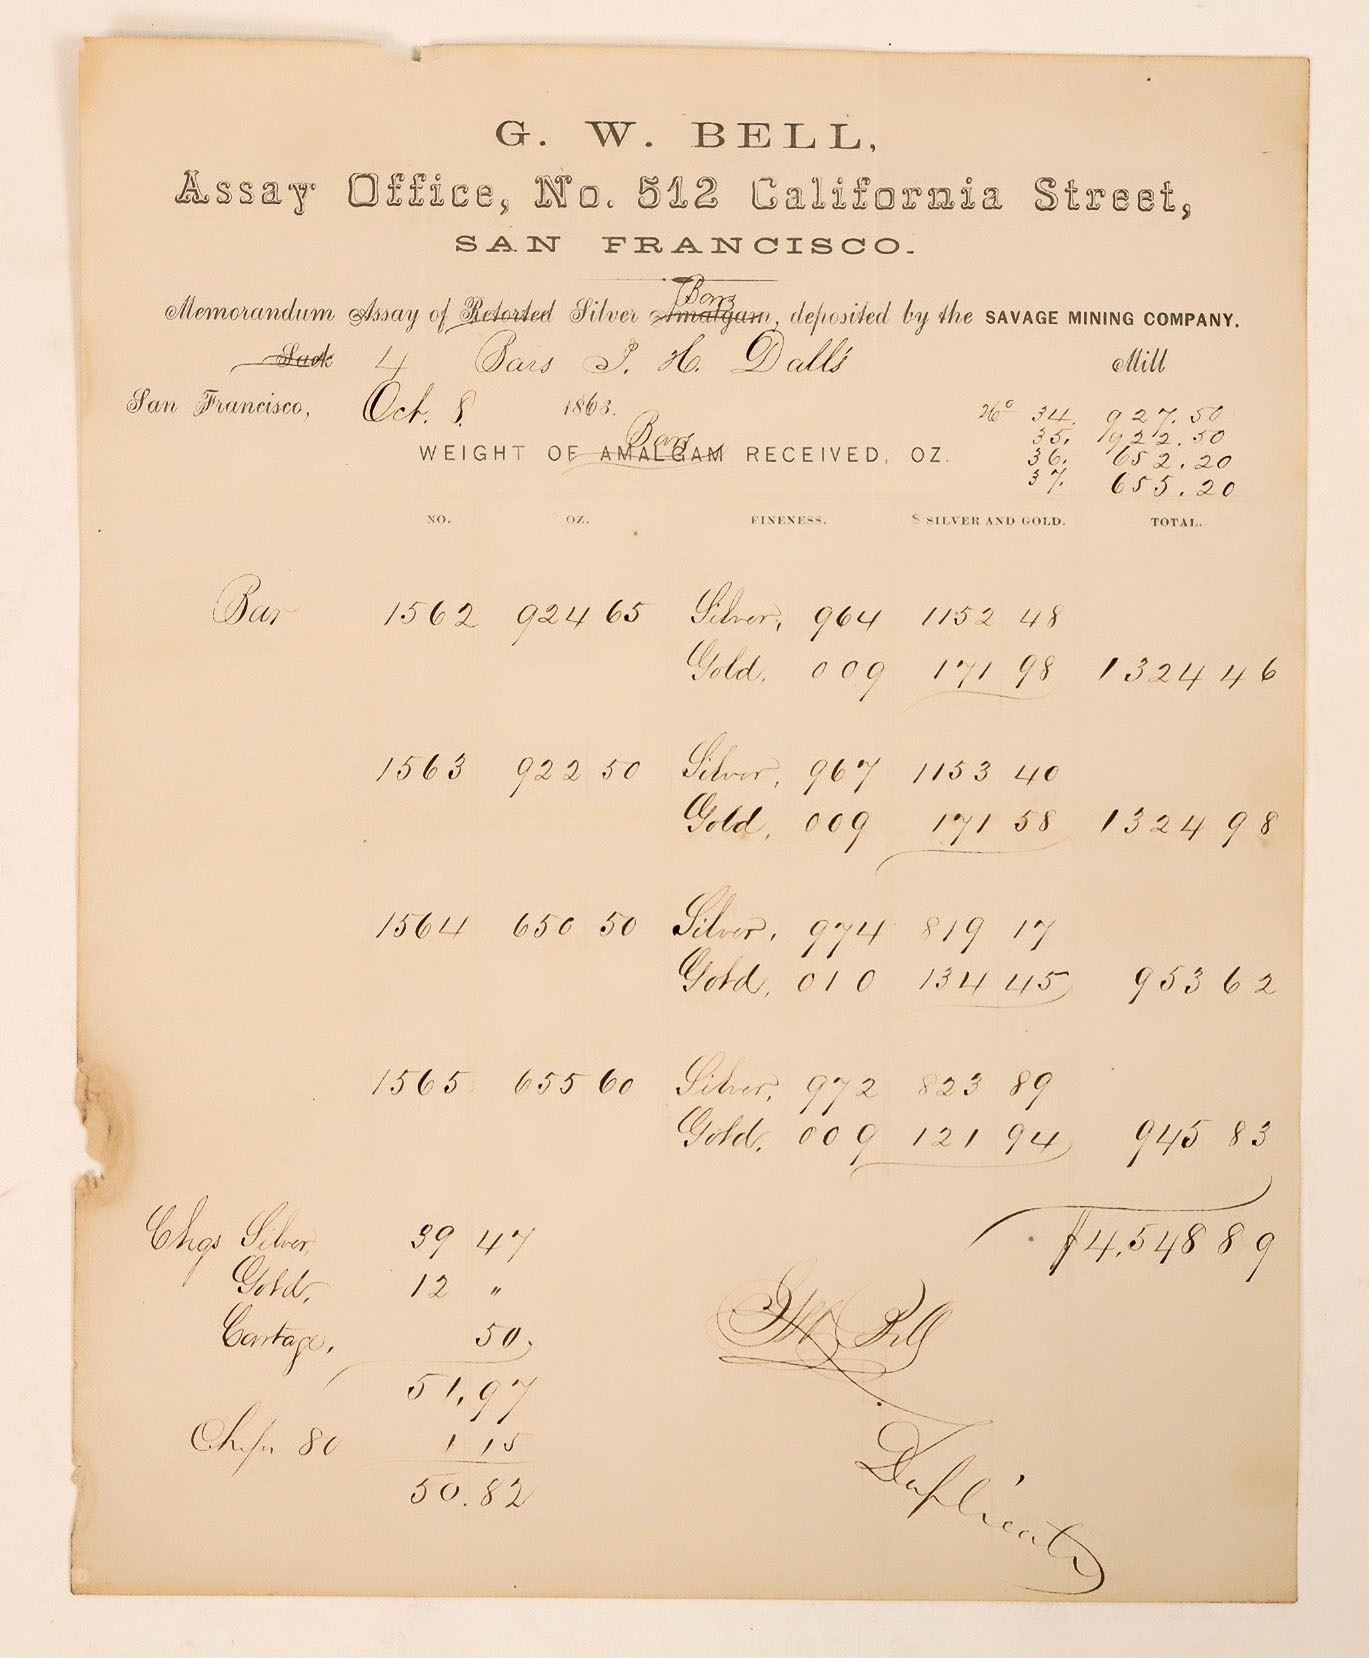 G. W. BELL,
Assay Office, No. 512 California Street,
SAN FRANCISCO.
Bars
Memorandum Assay of Retorted Silver Amalgam, deposited by the SAVAGE MINING COMPANY.
Sack 4 Bars J. H. Dall's Mill
San Francisco, Oct. 8 1863. No 34. 927.50
Bars 35. 922.50
WEIGHT OF AMALGAM RECEIVED, OZ. 36. 652.20
37. 655.20
NO. OZ. FINENESS. $ SILVER AND GOLD. TOTAL.
Bar 1562 924 65 Silver, 964 1152 48
Gold, 009 171 98 1324 46
1563 922 50 Silver, 967 1153 40
Gold, 009 171 58 1324 98
1564 650 50 Silver, 974 819 17
Gold, 010 134 45 953 62
1565 655 60 Silver, 972 823 89
Gold, 009 121 94 945 83
$4.548 89
Chgs Silver, 39 47
Gold, 12 "
Cartage, 50.
51,97
Chip 80 1 15
50.82
GW Bell
Duplicate